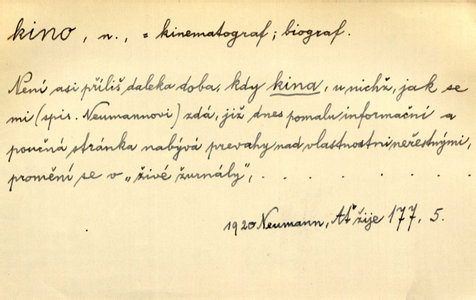 kino, n., = kinematograf; biograf.
Není asi příliš daleka doba, kdy kina, u nichž, jak se
mi (spis. Neumannovi) zdá, již dnes pomalu informační a
poučná stránka nabývá prevahy nad vlastnostmi neřestnými,
promění se v „živé žurnály", . . . . . . . .
1920 Neumann, Ať žije 177, 5.